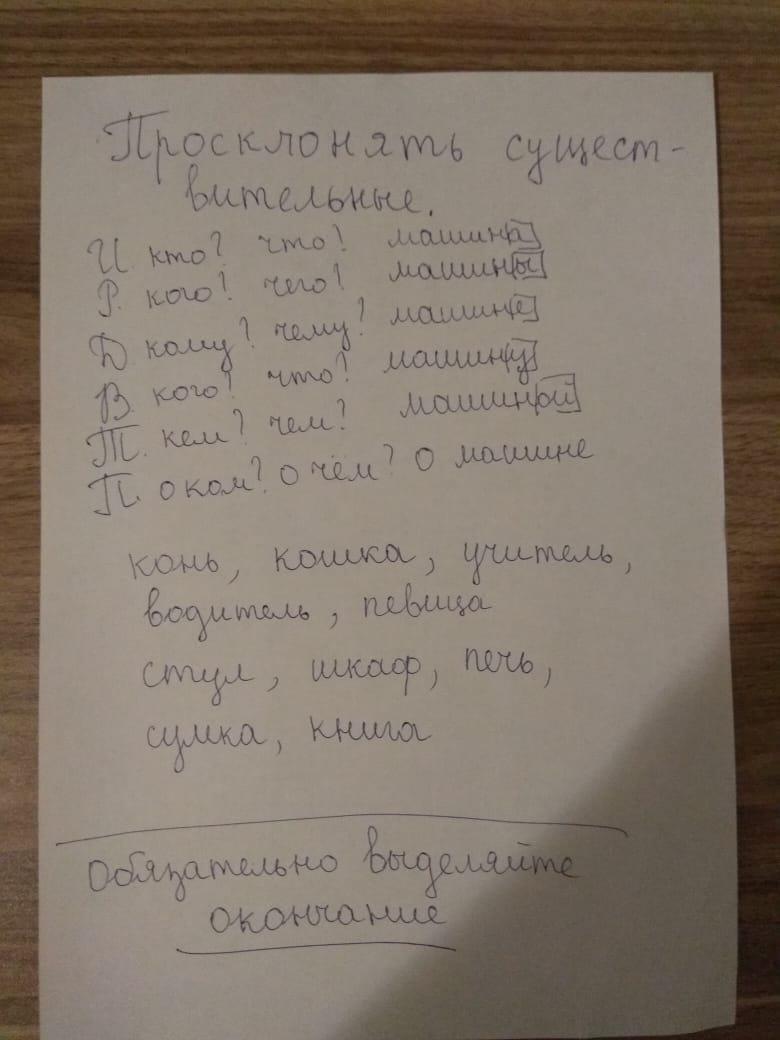 Просклонять сущест-
вительные.
И. кто? что? машина
Р. кого? чего? машины
Д. кому? чему? машине
В. кого? что? машину
Т. кем? чем? машиной
П. о ком? о чём? о машине
конь, кошка, учитель,
водитель, певица
стул, шкаф, печь,
сумка, книга
Обязательно выделяйте
окончание